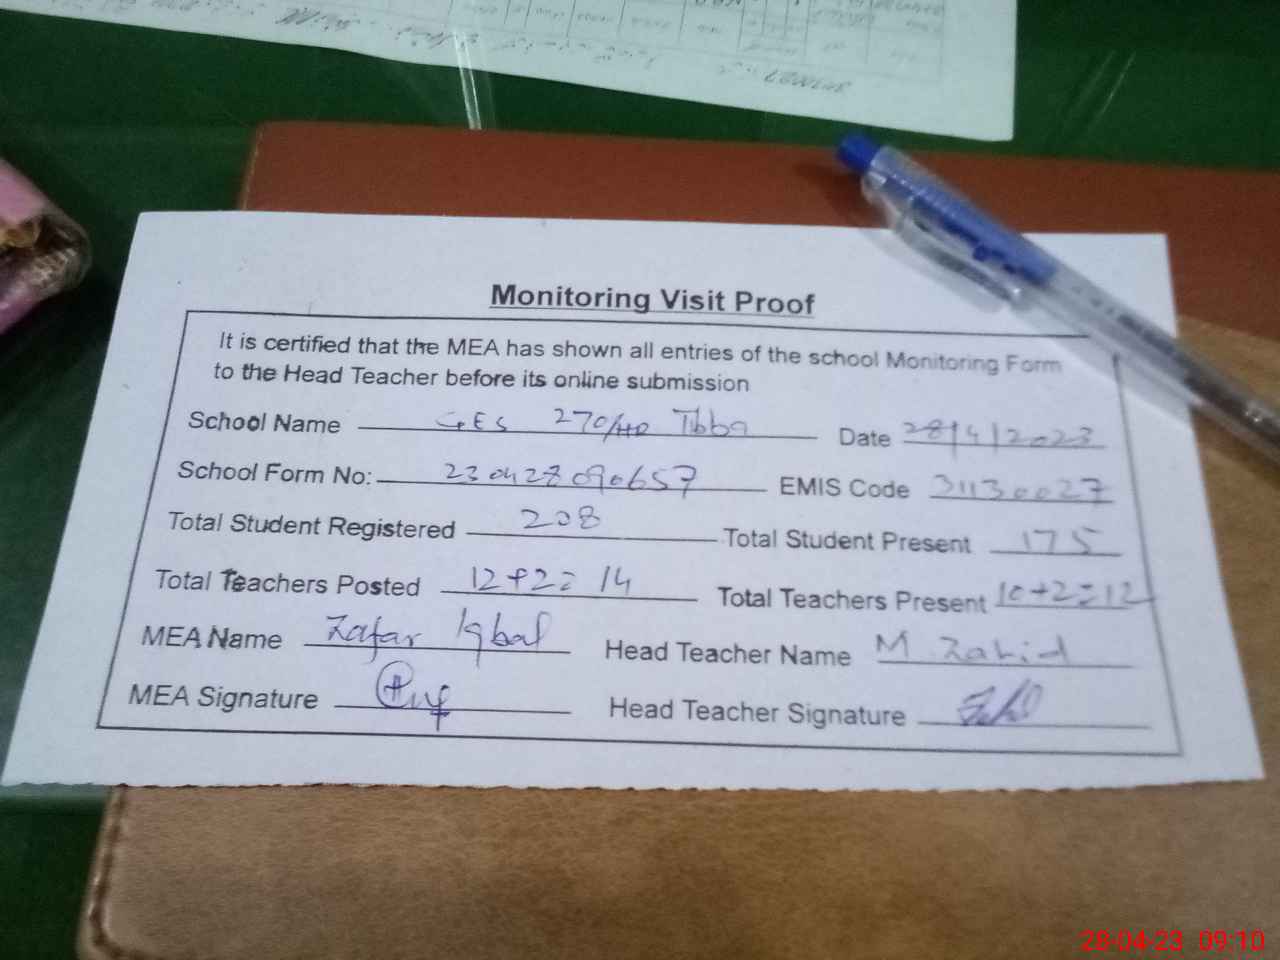 Monitoring Visit Proof
It is certified that the MEA has shown all entries of the school Monitoring Form
to the Head Teacher before its online submission
School Name GES 270/HR Tibba Date 28/4/2023
School Form No: 230428090657 EMIS Code 31130027
Total Student Registered 208 Total Student Present 175
Total Teachers Posted 12+2=14 Total Teachers Present 10+2=12
MEA Name Zafar Iqbal Head Teacher Name M. Zahid
MEA Signature Head Teacher Signature
28-04-23 09:10